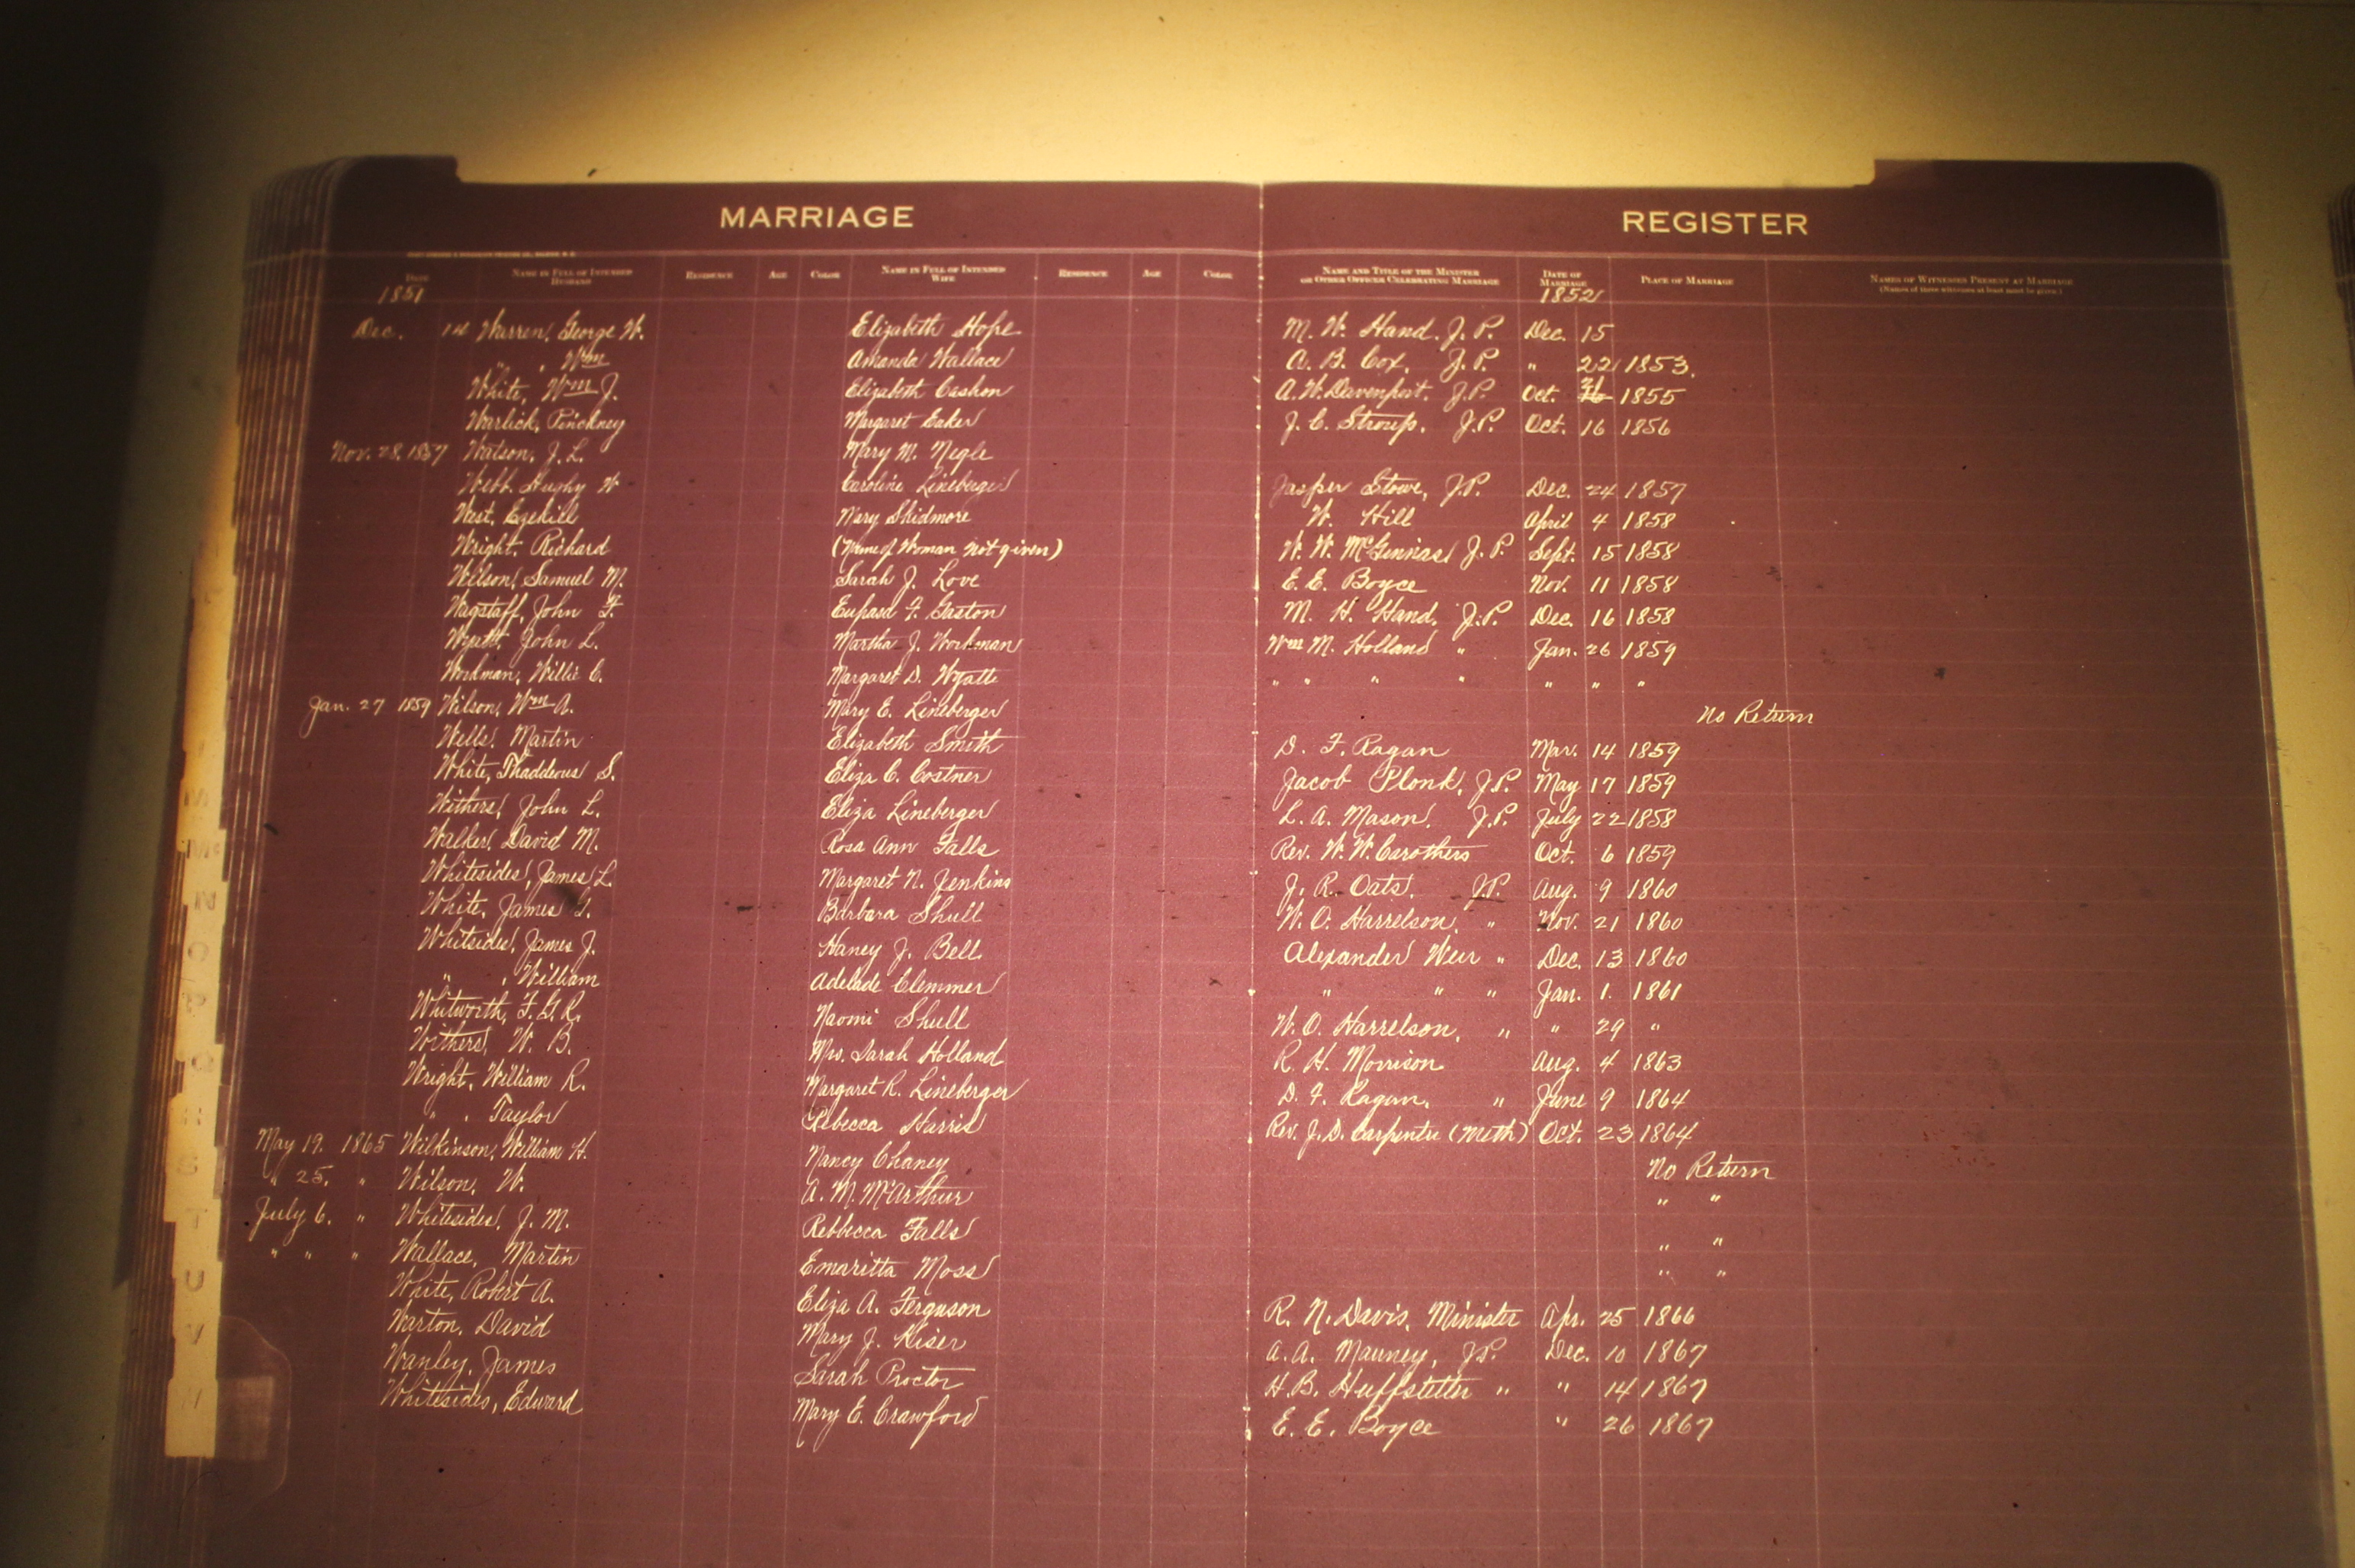 MARRIAGE REGISTER
DATE NAME IN FULL OF INTENDED HUSBAND RESIDENCE AGE COLOR NAME IN FULL OF INTENDED WIFE RESIDENCE AGE COLOR NAME AND TITLE OF THE MINISTER OR OTHER OFFICER CELEBRATING MARRIAGE DATE OF MARRIAGE PLACE OF MARRIAGE NAMES OF WITNESSES PRESENT AT MARRIAGE (Names of three witnesses at least must be given)
1851 1852
Dec. 14 Warren, George W. Elizabeth Hope M. W. Hand. J. P. Dec. 15
" , Wm Amanda Wallace A. B. Cox, J. P. " 22 1853.
White, Wm J. Elizabeth Cashon A. W. Davenport. J. P. Oct. 1855
Warlick, Pinckney Margaret Eaker J. C. Stroup, J.P. Oct. 16 1856
Nov. 28, 1857 Watson, J. L. Mary M. Negle
Webb. Hughy W Caroline Lineberger Jasper Stowe, J.P. Dec. 24 1857
West, Ezekiel Mary Skidmore W. Hill April 4 1858
Wright, Richard (Name of Woman not given) W. W. McGinnas J. P. Sept. 15 1858
Wilson, Samuel M. Sarah J. Love E. E. Boyce Nov. 11 1858
Wagstaff, John F. F. Gaston M. H. Hand, J.P. Dec. 16 1858
Wyatt, John L. Martha J. Workman Wm M. Holland " Jan. 26 1859
Workman, Willie C. Margaret D. Wyatt " " " " " " "
Jan. 27 1859 Wilson, Wm A. Mary E. Lineberger No Return
Wells, Martin Elizabeth Smith D. F. Ragan Mar. 14 1859
White, Thaddeous S. Eliza C. Costner Jacob Plonk, J.P. May 17 1859
Withers, John L. Eliza Lineberger L. A. Mason, J.P. July 22 1858
Walker, David M. Rosa Ann Falls Rev. W. W. Carothers Oct. 6 1859
Whitesides, James L. Margaret N. Jenkins J. R. Oats, J.P. Aug. 9 1860
White, James G. Barbara Shull W. O. Harrelson, " Nov. 21 1860
Whitsides, James J. Haney J. Bell Alexander Weir " Dec. 13 1860
" , William Adelade Clemmer " " " Jan. 1. 1861
Whitworth, F. G. R. Naomi Shull W. O. Harrelson, " " 29 "
Withers, W. B. Mrs. Sarah Holland R. H. Morrison Aug. 4 1863
Wright, William R. Margaret R. Lineberger D. F. Ragan, " June 9 1864
" . Taylor Rebecca Harris Rev. J. D. Carpenter (Meth) Oct. 23 1864
May 19. 1865 Wilkinson, William H. Nancy Chaney No Return
" 25. " Wilson, W. A. M. McArthur " "
July 6. " Whitesides, J. M. Rebbecca Falls " "
" " " Wallace, Martin Emaritta Moss " "
White, Robert A. Eliza A. Ferguson R. N. Davis, Minister Apr. 25 1866
Warton, David Mary J. Kiser A. A. Mauney, J.P. Dec. 10 1867
Wanley, James Sarah Proctor H. B. Huffstetler " " 14 1867
Whitesides, Edward Mary E. Crawford E. E. Boyce " 26 1867